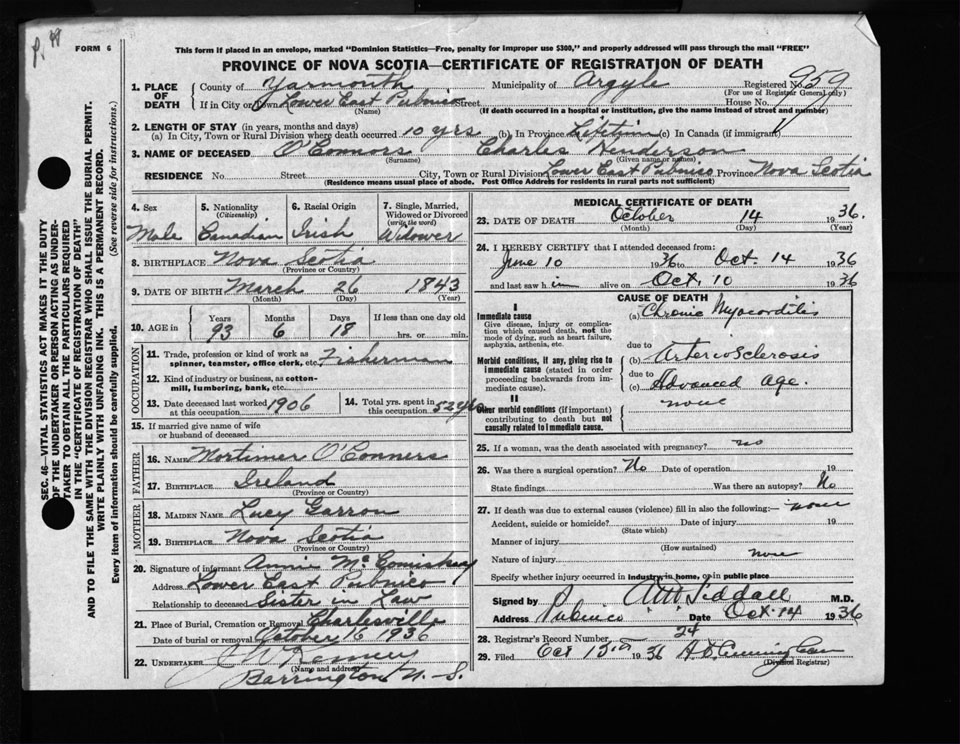 P. 49
FORM 6
This form if placed in an envelope, marked "Dominion Statistics—Free, penalty for improper use $300," and properly addressed will pass through the mail "FREE"
PROVINCE OF NOVA SCOTIA—CERTIFICATE OF REGISTRATION OF DEATH
SEC. 46—VITAL STATISTICS ACT MAKES IT THE DUTY
OF THE UNDERTAKER OR PERSON ACTING AS UNDER-
TAKER TO OBTAIN ALL THE PARTICULARS REQUIRED
IN THE "CERTIFICATE OF REGISTRATION OF DEATH"
AND TO FILE THE SAME WITH THE DIVISION REGISTRAR WHO SHALL ISSUE THE BURIAL PERMIT.
WRITE PLAINLY WITH UNFADING INK. THIS IS A PERMANENT RECORD.
Every item of information should be carefully supplied. (See reverse side for instructions.)
1. PLACE OF DEATH County of Yarmouth Municipality of Argyle Registered No. 959
(For use of Registrar General only)
If in City or Town Lower East Pubnico Street House No.
(Name) (If death occurred in a hospital or institution, give the name instead of street and number)
2. LENGTH OF STAY (in years, months and days)
(a) In City, Town or Rural Division where death occurred 10 yrs (b) In Province Lifetime (c) In Canada (if immigrant)
3. NAME OF DECEASED O'Connors Charles Henderson
(Surname) (Given name or names)
RESIDENCE No. Street City, Town or Rural Division Lower East Pubnico Province Nova Scotia
(Residence means usual place of abode. Post Office Address for residents in rural parts not sufficient)
4. Sex Male
5. Nationality (Citizenship) Canadian
6. Racial Origin Irish
7. Single, Married, Widowed or Divorced (write the word) Widower
8. BIRTHPLACE Nova Scotia
(Province or Country)
9. DATE OF BIRTH March 26 1843
(Month) (Day) (Year)
10. AGE in Years 93 Months 6 Days 18 If less than one day old hrs. or min.
OCCUPATION
11. Trade, profession or kind of work as spinner, teamster, office clerk, etc. Fisherman
12. Kind of industry or business, as cotton-mill, lumbering, bank, etc.
13. Date deceased last worked at this occupation 1906
14. Total yrs. spent in this occupation 52 yrs
15. If married give name of wife or husband of deceased
FATHER
16. NAME Mortimer O'Conners
17. BIRTHPLACE Ireland
(Province or Country)
MOTHER
18. MAIDEN NAME Lucy Garron
19. BIRTHPLACE Nova Scotia
(Province or Country)
20. Signature of informant Annie McComiskey
Address Lower East Pubnico
Relationship to deceased Sister in Law
21. Place of Burial, Cremation or Removal Charlesville
Date of burial or removal October 16 1936
22. UNDERTAKER
(Name and address)
Barrington N. S.
MEDICAL CERTIFICATE OF DEATH
23. DATE OF DEATH October 14 1936.
(Month) (Day) (Year)
24. I HEREBY CERTIFY that I attended deceased from:
June 10 1936 to Oct. 14 1936
and last saw him alive on Oct. 10 1936
CAUSE OF DEATH
I
Immediate cause
Give disease, injury or complication which caused death, not the mode of dying, such as heart failure, asphyxia, asthenia, etc.
(a) Chronic Myocarditis
due to
Morbid conditions, if any, giving rise to immediate cause (stated in order proceeding backwards from immediate cause).
(b) Arteriosclerosis
due to
(c) Advanced Age.
II
Other morbid conditions (if important) contributing to death but not causally related to immediate cause.
none
25. If a woman, was the death associated with pregnancy? no
26. Was there a surgical operation? No Date of operation 19
State findings Was there an autopsy? No
27. If death was due to external causes (violence) fill in also the following:— none
Accident, suicide or homicide? Date of injury 19
(State which)
Manner of injury
(How sustained)
Nature of injury none
Specify whether injury occurred in industry, in home, or in public place
Signed by Siddall M.D.
Address Pubnico Date Oct. 14 1936
28. Registrar's Record Number 24
29. Filed Oct 15th 1936 Cunningham
(Division Registrar)